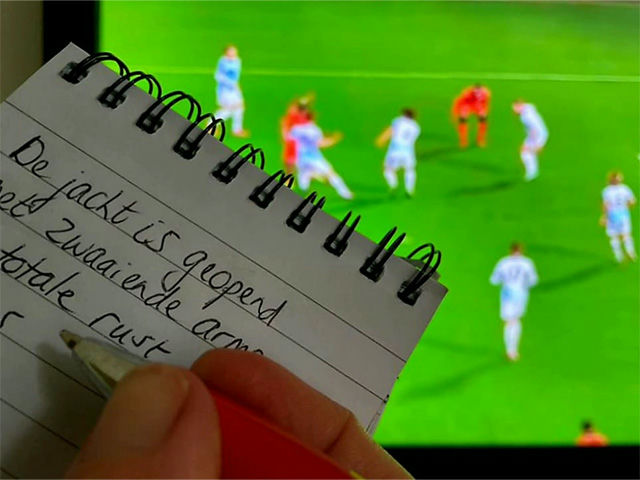 De jacht is geopend
met zwaaiende arme
totale rust
s